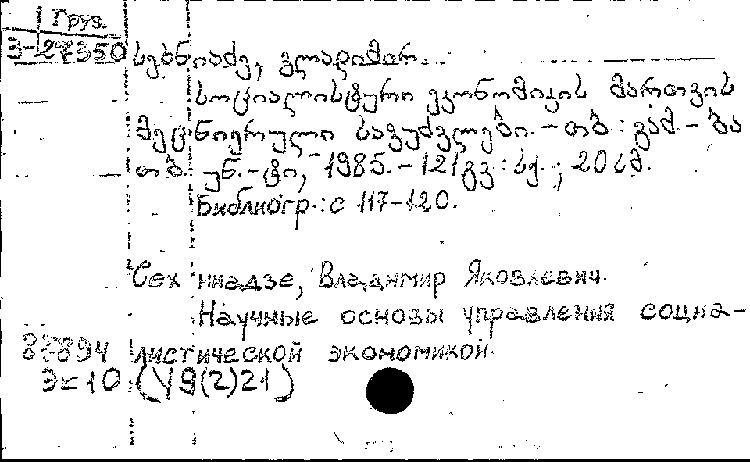 Груз.
Э-27350
სეხნიაძე, ვლადიმერ.
სოციალისტური ეკონომიკის მართვის
მეცნიერული საფუძვლები. - თბ. : გამ - ბა
თბ. უნ. - ტი, 1985. - 121გვ : სქ. ; 20 სმ.
Библиогр.: с 117-120.
Сехниадзе, Владимир Яковлевич.
Научные основы управления социа-
87894 листической экономикой.
Э=10 (У9(2)21)